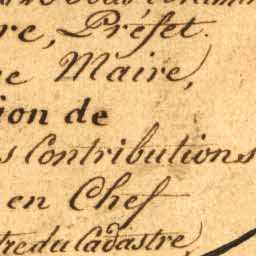 re, Préfet.
e Maire,
ion de
s Contributions
en Chef
tre du Cadastre,